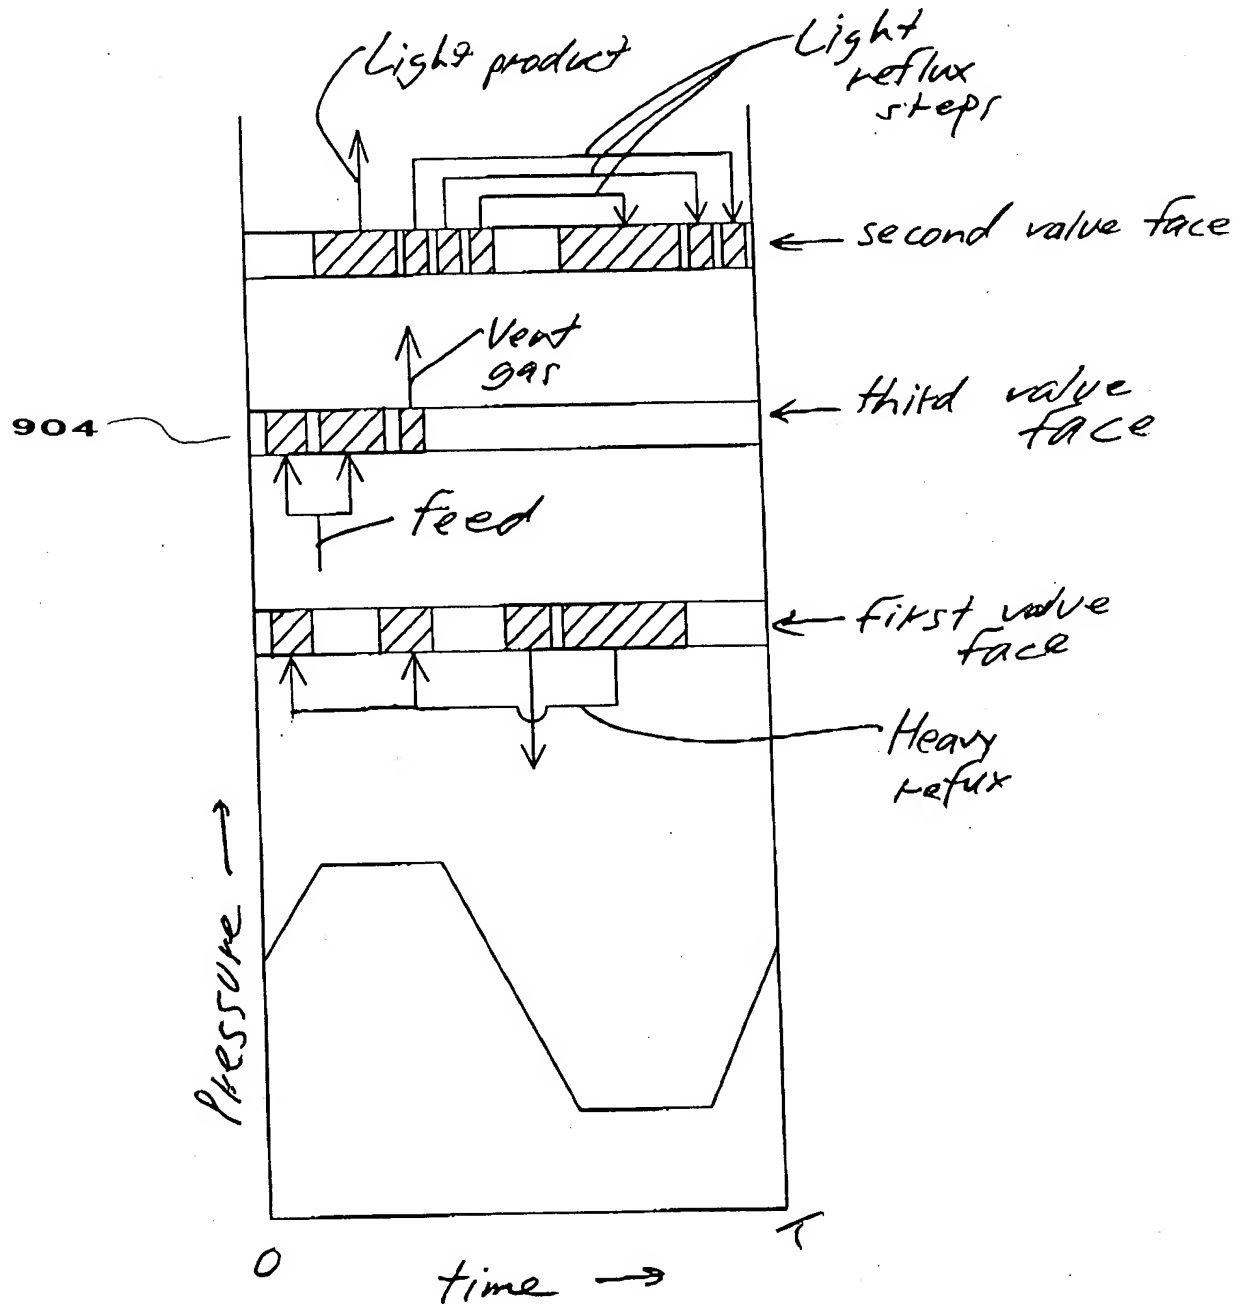 Light product
Light
reflux
steps
second value face
Vent
gas
third value
face
904
feed
first value
face
Heavy
refux
Pressure
0
T
time